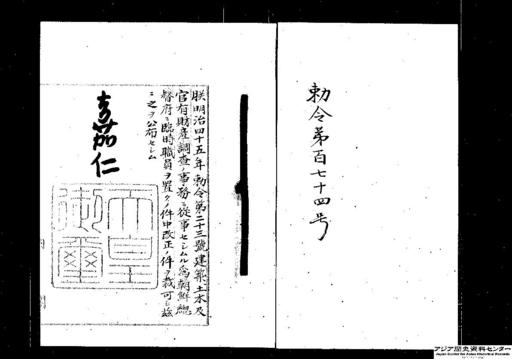 勅令第百七十四号
朕明治四十五年勅令第二十三號建築土木及
官有財產調查ノ事務ニ從事セシムル爲朝鮮總
督府ニ臨時職員ヲ置クノ件中改正ノ件ヲ裁可シ茲
ニ之ヲ公布セシム
嘉仁
天皇
御璽
アジア歴史資料センター
Japan Center for Asian Historical Records